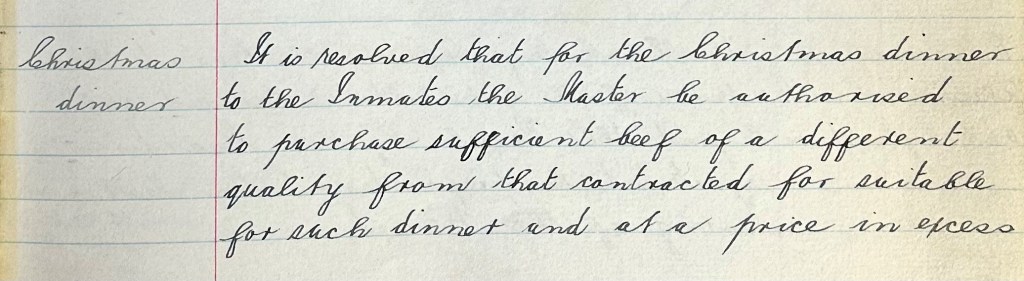 Christmas
dinner
It is resolved that for the Christmas dinner
to the Inmates the Master be authorised
to purchase sufficient beef of a different
quality from that contracted for suitable
for such dinner and at a price in excess